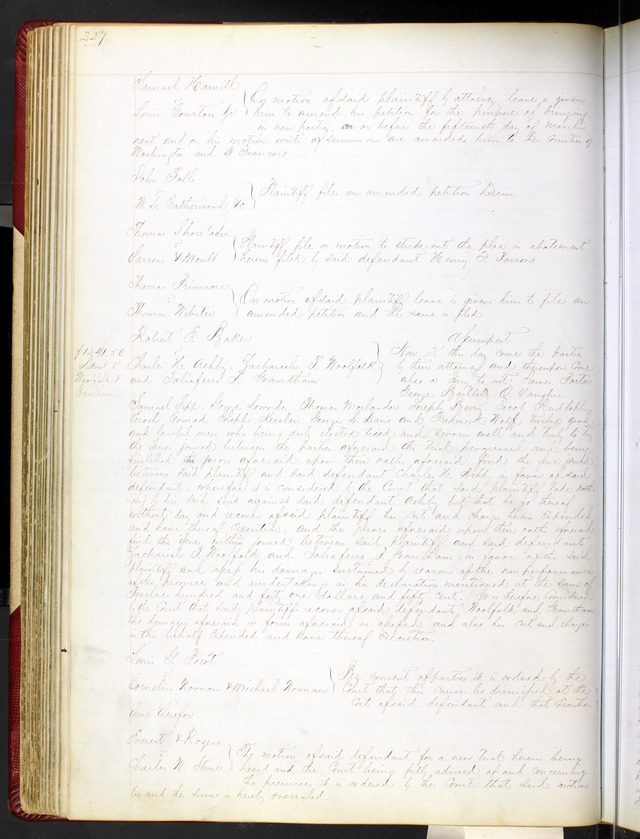 227
Samuel Hamill
vs
Louis Houston Jr } On motion of said plaintiff by attorney leave is given
him to amend his petition for the purpose of bringing
in new parties on or before the fifteenth day of March
next and on his motion writs of summons are awarded him to the Counties of
Washington and St Francois
John Falls
W. Catherwood &c } Plaintiff file an amended petition herein
Thomas
Parsons & } Plaintiff file a motion to strike out the plea in abatement
herein filed by said defendant Henry Parsons
Thomas Primrose
vs
Thomas Webster } On motion of said plaintiff leave is given him to file an
amended petition and the same is filed
Robert E. Baker
Assumpsit
Charles H. Ashby, Zachariah T. Woolfolk
and Taliaferro Grantham } Now at this day come the parties
by their attorneys and thereupon come
also a jury to wit: James
George Bartlett
Samuel George Lownds, Thomas Joseph Berry, Jacob
Conrad, Joseph George and Frederick Wolf twelve good
and lawful men who being duly elected tried and sworn well and truly to try
the issue joined between the parties aforesaid the trial progressed and being
the jurors aforesaid upon their oaths aforesaid find the issue joined
between said plaintiff and said defendant Charles H. Ashby in favor of said
defendant wherefore it is considered by the Court that said plaintiff take nothing
by his said suit against said defendant Ashby but that he go thereof
without day and recover of said plaintiff his costs and charges herein expended
and have thereof Execution. And the jurors aforesaid upon their oaths aforesaid
find the issue within joined between said plaintiff and said defendants
Zachariah T. Woolfolk and Taliaferro Grantham in favor of the said
plaintiff and assess his damages sustained by reason of the non performance
of the promises and undertakings in the declaration mentioned at the sum of
hundred and forty one dollars and fifty cents. It is therefore considered
by the Court that said plaintiff recover of said defendants Woolfolk and Grantham
the damages aforesaid in form aforesaid so assessed and also his costs and charges
in this behalf expended and have thereof Execution.
Louis G. Picot
vs
Cornelius Noonan & Michael Noonan } By consent of parties it is ordered by the
Court that this cause be dismissed at the
cost of said defendants and that Execution
issue therefor
Everett & Rogers
vs
Charles W. } The motion of said defendant for a new trial herein being
heard and the Court being fully advised of and concerning
the premises, it is ordered by the Court that said motion
be and the same is hereby overruled